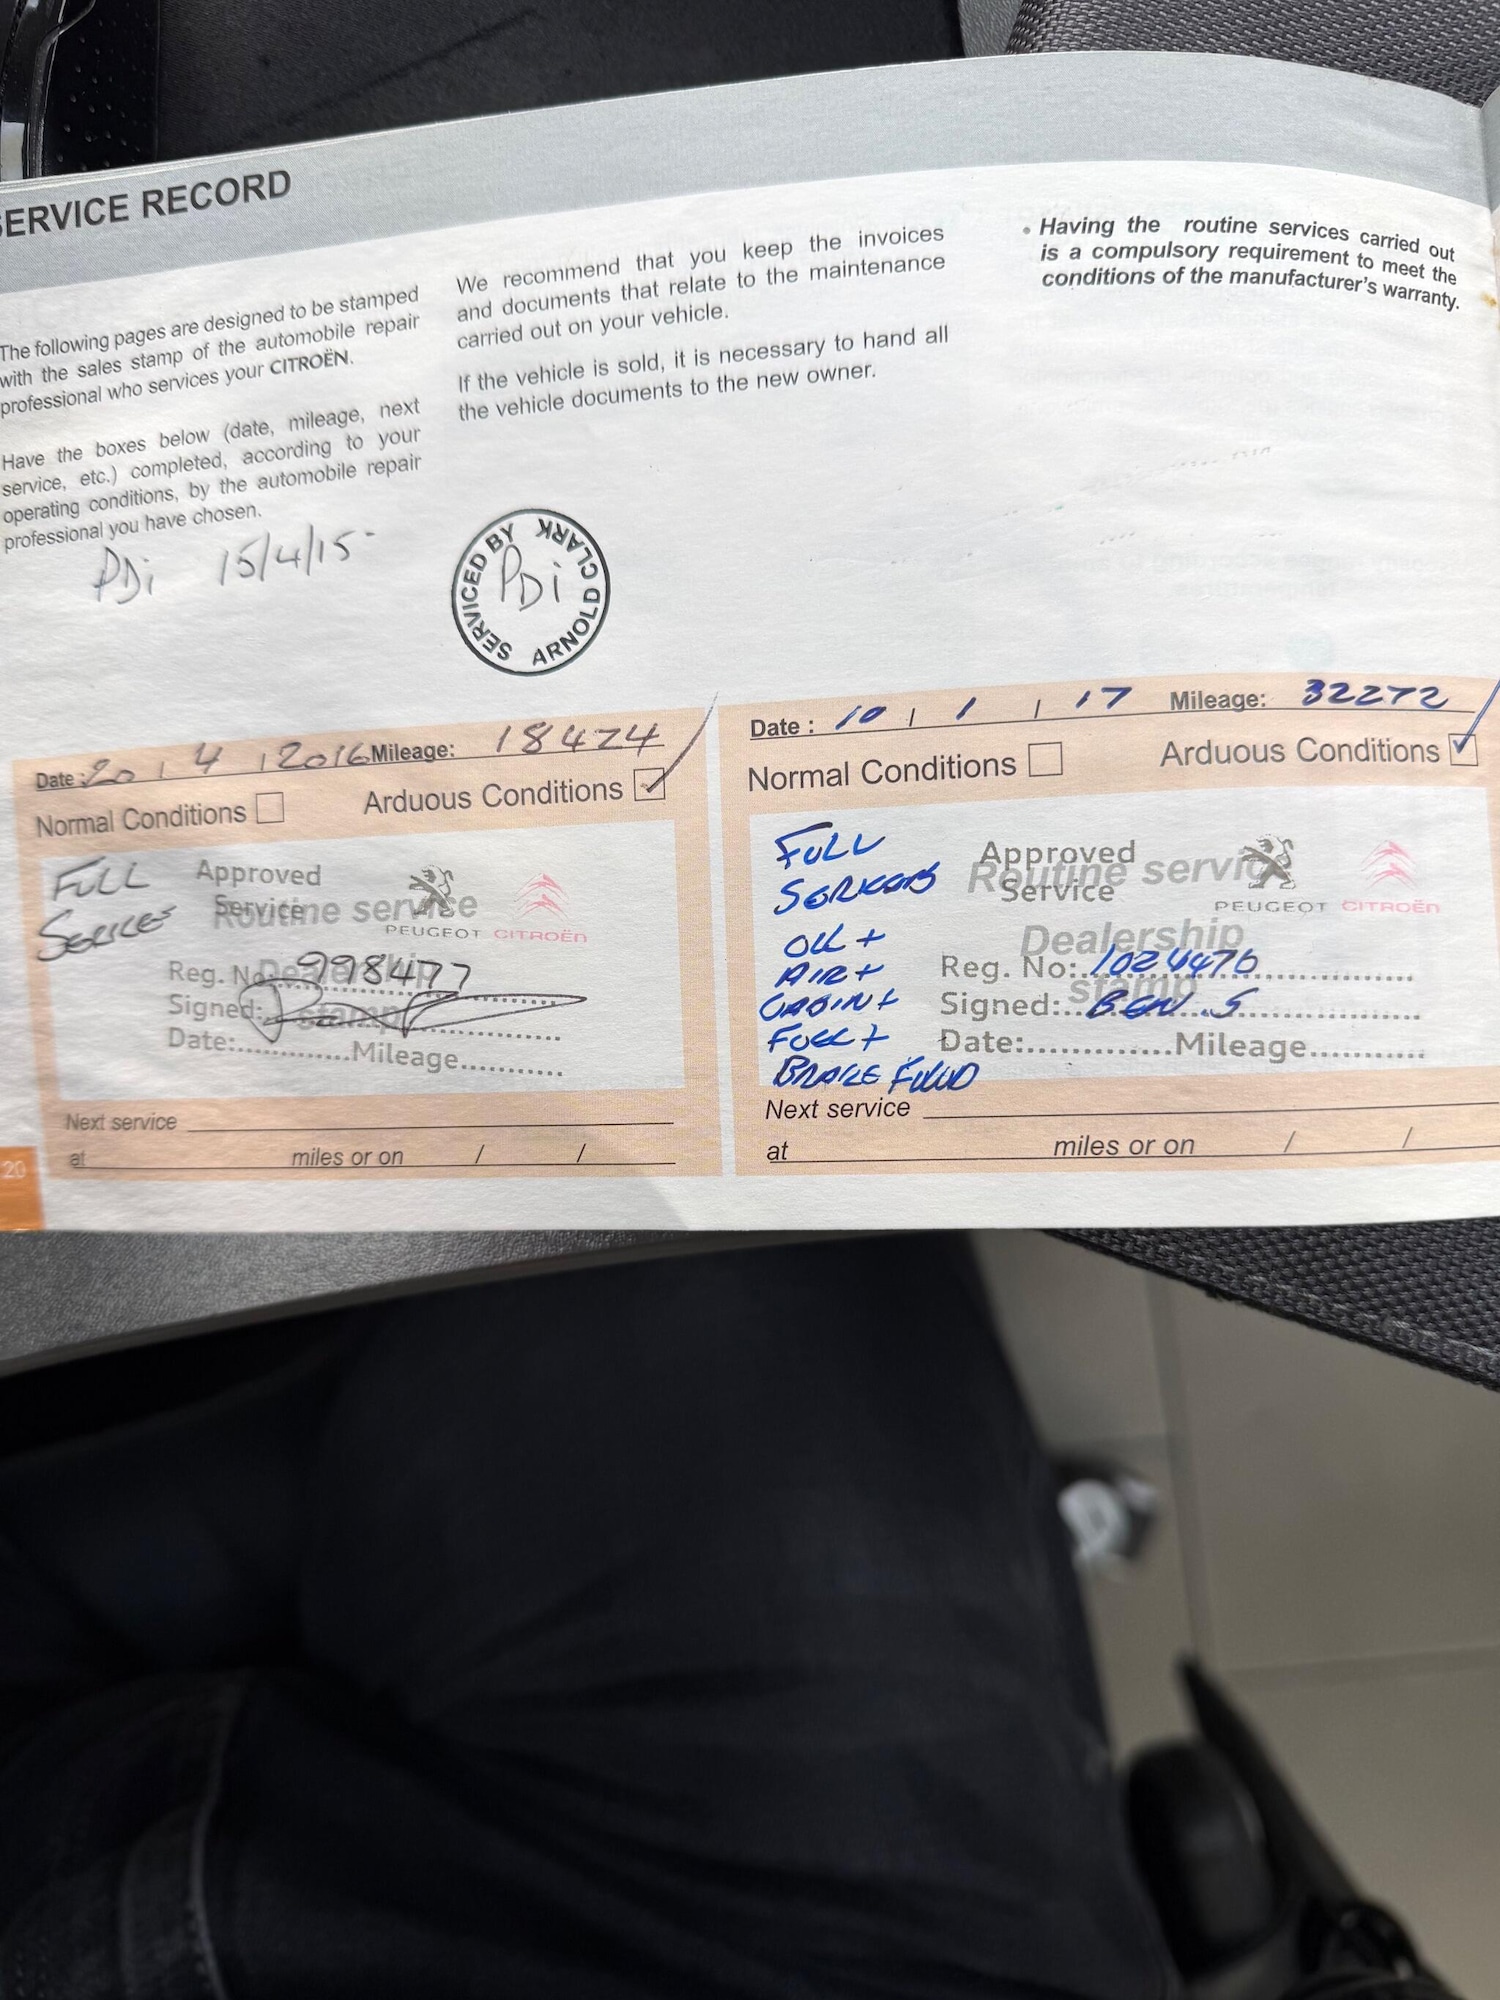 SERVICE RECORD
The following pages are designed to be stamped
with the sales stamp of the automobile repair
professional who services your CITROËN.
Have the boxes below (date, mileage, next
service, etc.) completed, according to your
operating conditions, by the automobile repair
professional you have chosen.
We recommend that you keep the invoices
and documents that relate to the maintenance
carried out on your vehicle.
If the vehicle is sold, it is necessary to hand all
the vehicle documents to the new owner.
• Having the routine services carried out
is a compulsory requirement to meet the
conditions of the manufacturer's warranty.
PDi 15/4/15
SERVICED BY ARNOLD CLARK
PDi
Date : 20 / 4 / 2016 Mileage: 18474
Normal Conditions Arduous Conditions
FULL
SERVICE
Approved
Service
Routine service
PEUGEOT CITROËN
Dealership
stamp
Reg. No: 998477
Signed:
Date:.............Mileage...........
Next service
at miles or on / /
Date : 10 / 1 / 17 Mileage: 32272
Normal Conditions Arduous Conditions
FULL
OIL +
AIR +
FUEL +
BRAKE FLUID
Approved
Service
Routine service
PEUGEOT CITROËN
Dealership
stamp
Reg. No: 1024476
Signed: BEN.S
Date:..............Mileage...........
Next service
at miles or on / /
20